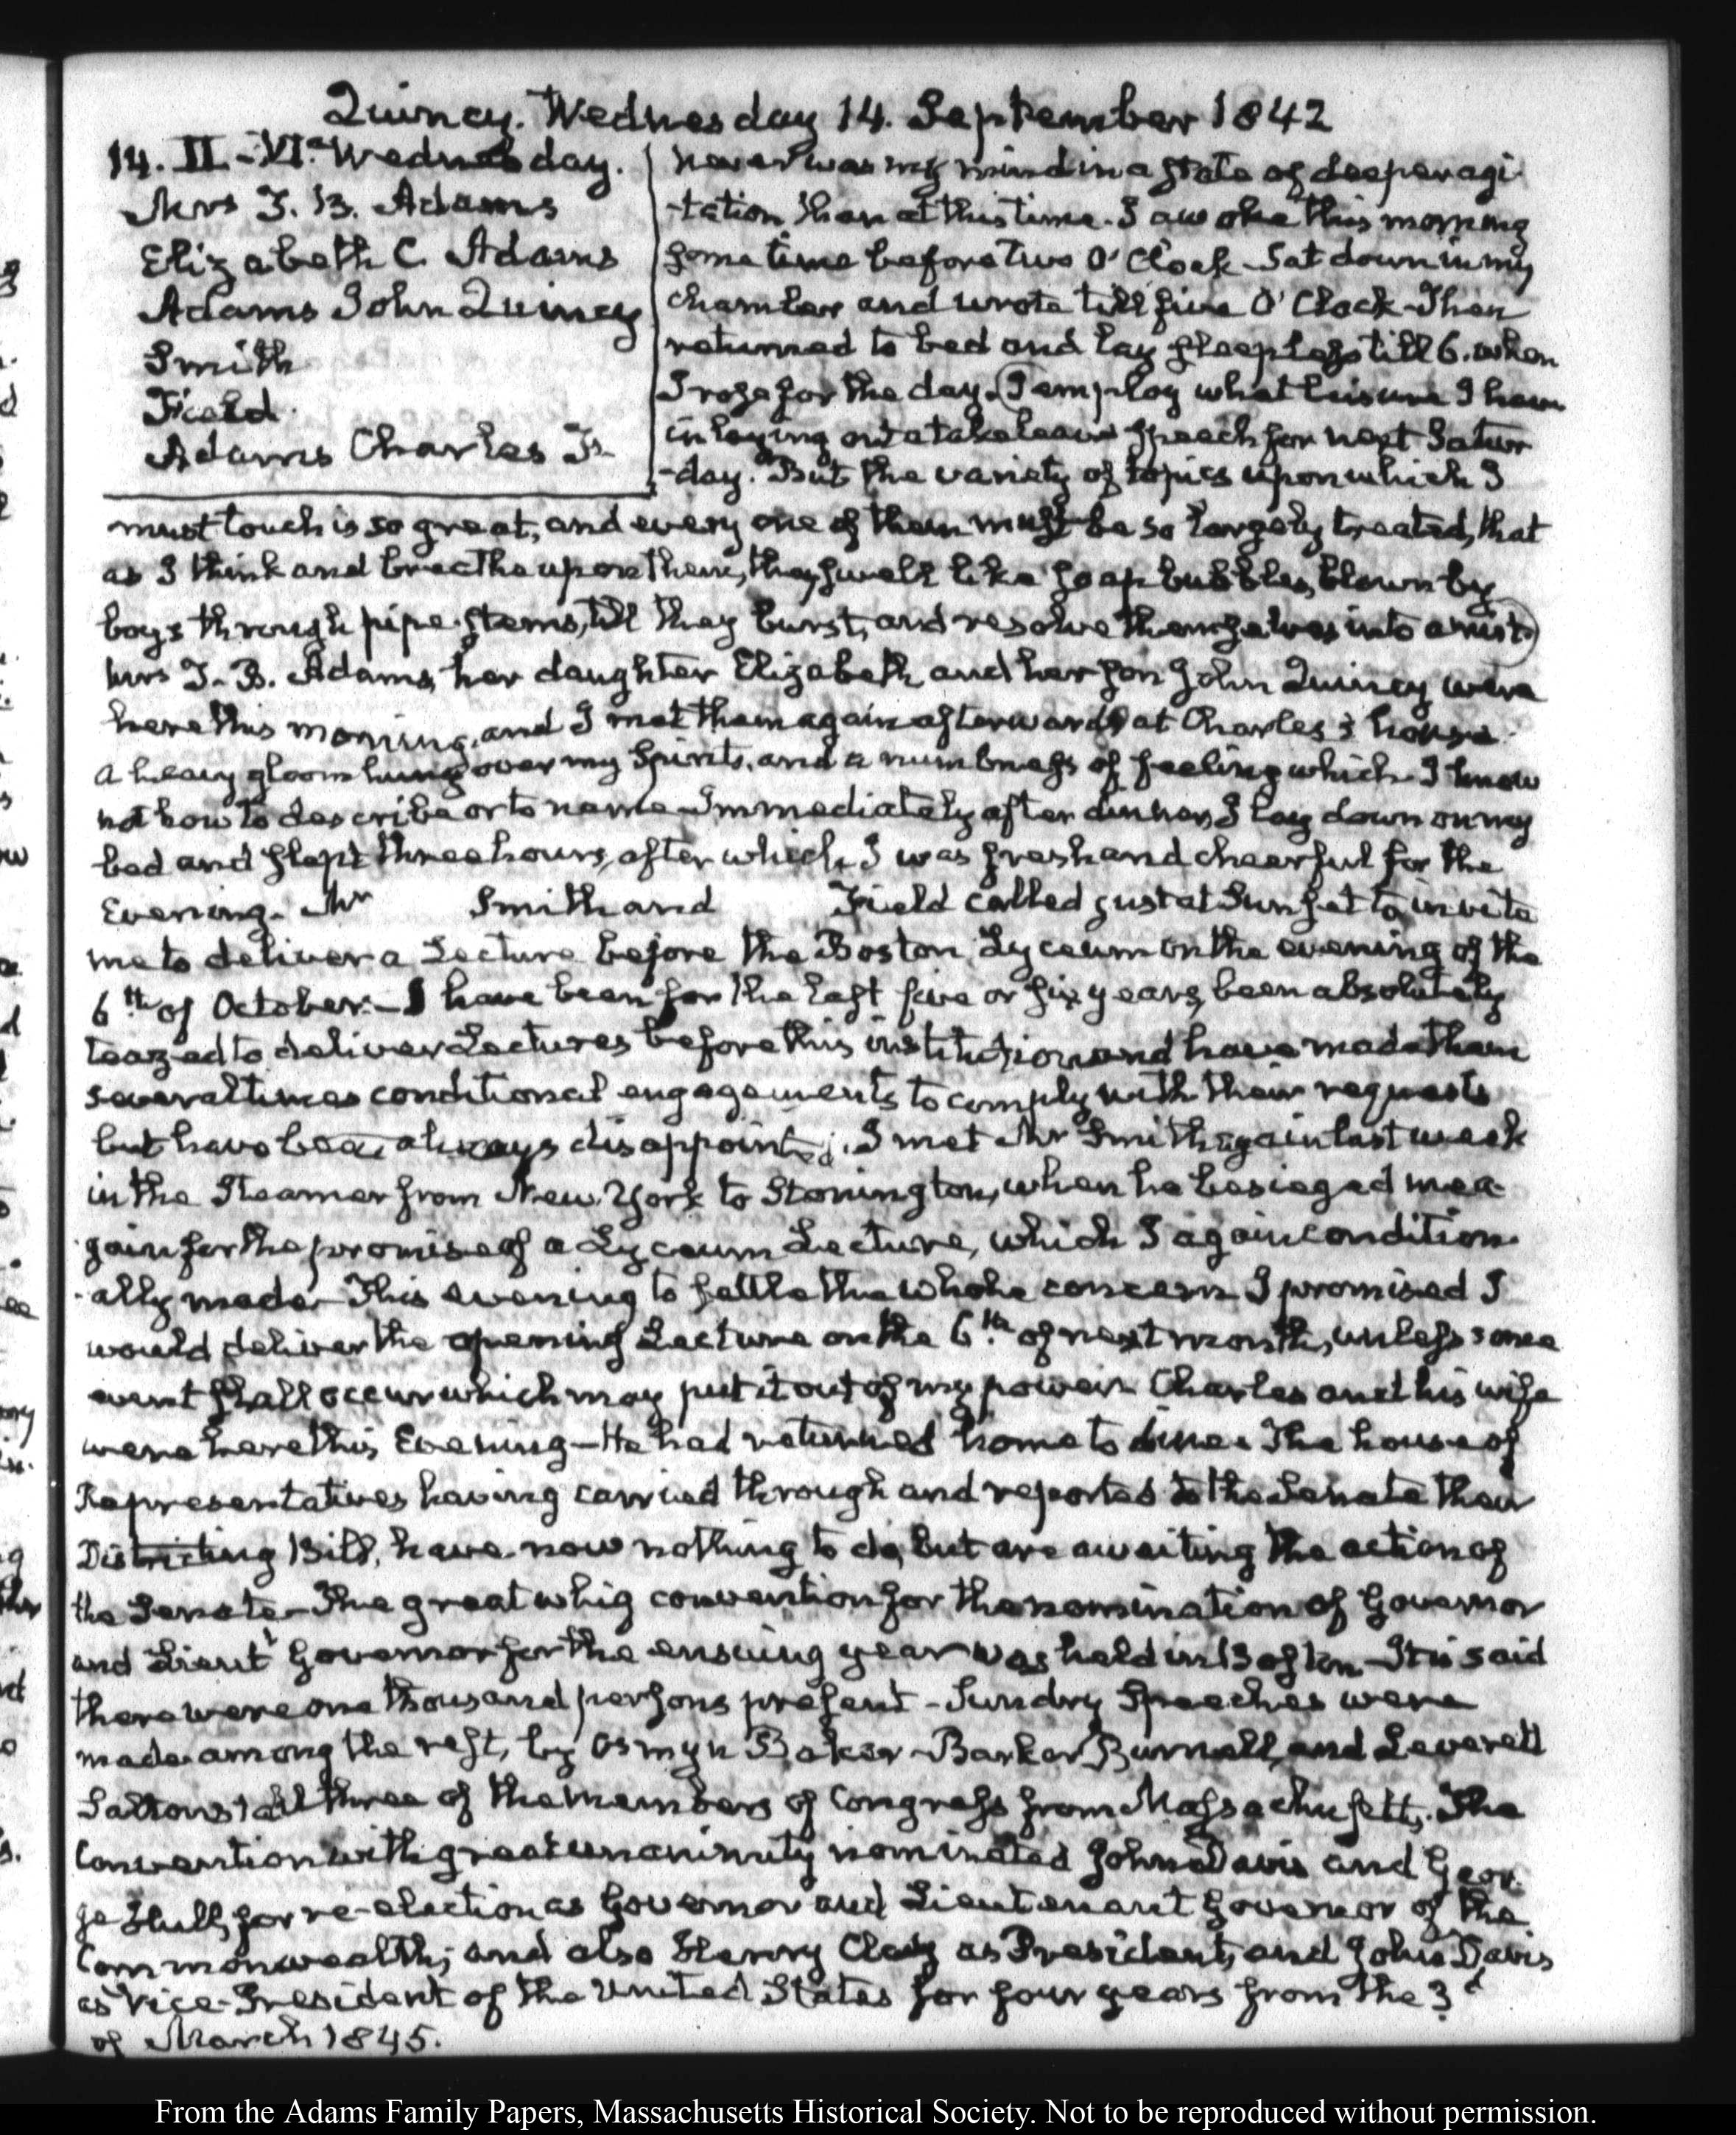 Quincy. Wednesday 14. September 1842
14. II-VI. Wednesday.
Mrs T. B. Adams
Elizabeth C. Adams
Adams John Quincy
Smith
Field
Adams Charles F.
never was my mind in a state of deeper agi-
-tation than at this time. I awoke this morning
sometime before two O'Clock - Sat down in my
chamber and wrote till five O'Clock - Then
returned to bed and lay sleepless till 6. when
I rose for the day. I employ what leisure I have
in laying out a take leave speech for next Satur
-day. But the variety of topics upon which I
must touch is so great, and every one of them must be so largely treated, that
as I think and breathe upon them, they swell like soap bubbles, blown by
boys through pipe-stems, till they burst, and resolve themselves into a mist.
Mrs T. B. Adams, her daughter Elizabeth and her son John Quincy were
here this morning, and I met them again afterwards at Charles's house.
A heavy gloom hung over my Spirits, and a numbness of feeling which I know
not how to describe or to name - Immediately after dinner, I lay down on my
bed and slept three hours, after which, I was fresh and cheerful for the
Evening. Mr Smith and Field called just at Sunset to invite
me to deliver a Lecture before the Boston Lyceum on the evening of the
6th of October. - I have been for the last five or six years, been absolutely
teazed to deliver Lectures before this institution and have made them
several times conditional engagements to comply with their requests
but have been always disappointed. I met Mr Smith again last week
in the Steamer from New York to Stonington, when he besieged me a-
gain for the promise of a Lyceum Lecture, which I again condition-
-ally made. This evening to settle the whole concern I promised I
would deliver the opening Lecture on the 6th of next month, unless some
event shall occur which may put it out of my power. Charles and his wife
were here this Evening - He had returned home to dine. The house of
Representatives having carried through and reported to the Senate their
Districting Bill, have now nothing to do, but are awaiting the action of
the Senate - The great whig convention for the nomination of Governor
and Lieut Governor for the ensuing year was held in Boston - It is said
there were one thousand persons present - Sundry Speeches were
made among the rest, by Osmyn Baker - Barker Burnell, and Leverett
Saltonstall three of the members of Congress from Massachusetts. The
Convention with great unanimity nominated John Davis and Geor-
ge Hull, for re-election as Governor and Lieutenant Governor of the
Commonwealth; and also Henry Clay as President, and John Davis
as Vice-President of the United States for four years from the 3d
of March 1845.
From the Adams Family Papers, Massachusetts Historical Society. Not to be reproduced without permission.